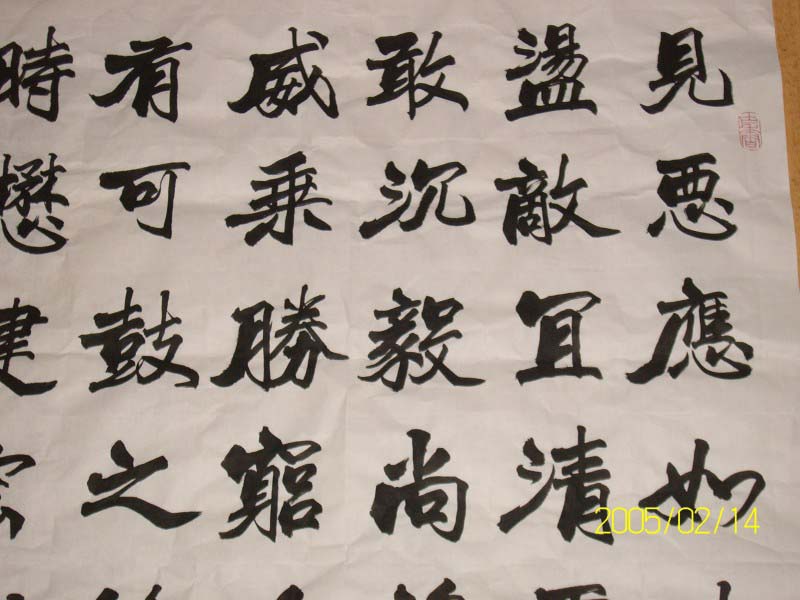 見惡應如
盪敵宜清
敢沉毅尚
威乗勝窮
有可鼓之
時懋建
2005/02/14